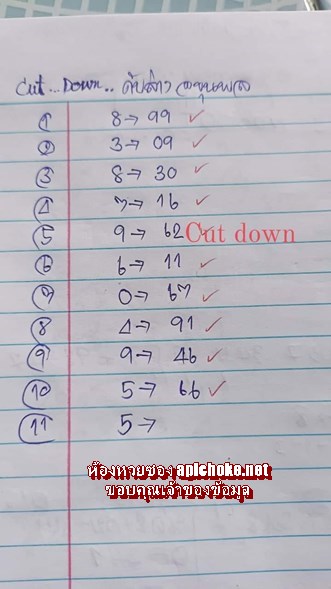 Cut... Down.. ดับล่าง
① 8→ 99 ✓
② 3→ 09 ✓
③ 8→ 30 ✓
④ 7→ 16 ✓
⑤ 9→ 62 Cut down
⑥ 6→ 11 ✓
⑦ 0→ 67 ✓
⑧ 4→ 91 ✓
⑨ 9→ 46 ✓
⑩ 5→ 66 ✓
⑪ 5→
ห้องหวยซอง apichoke.net
ขอบคุณเจ้าของข้อมูล